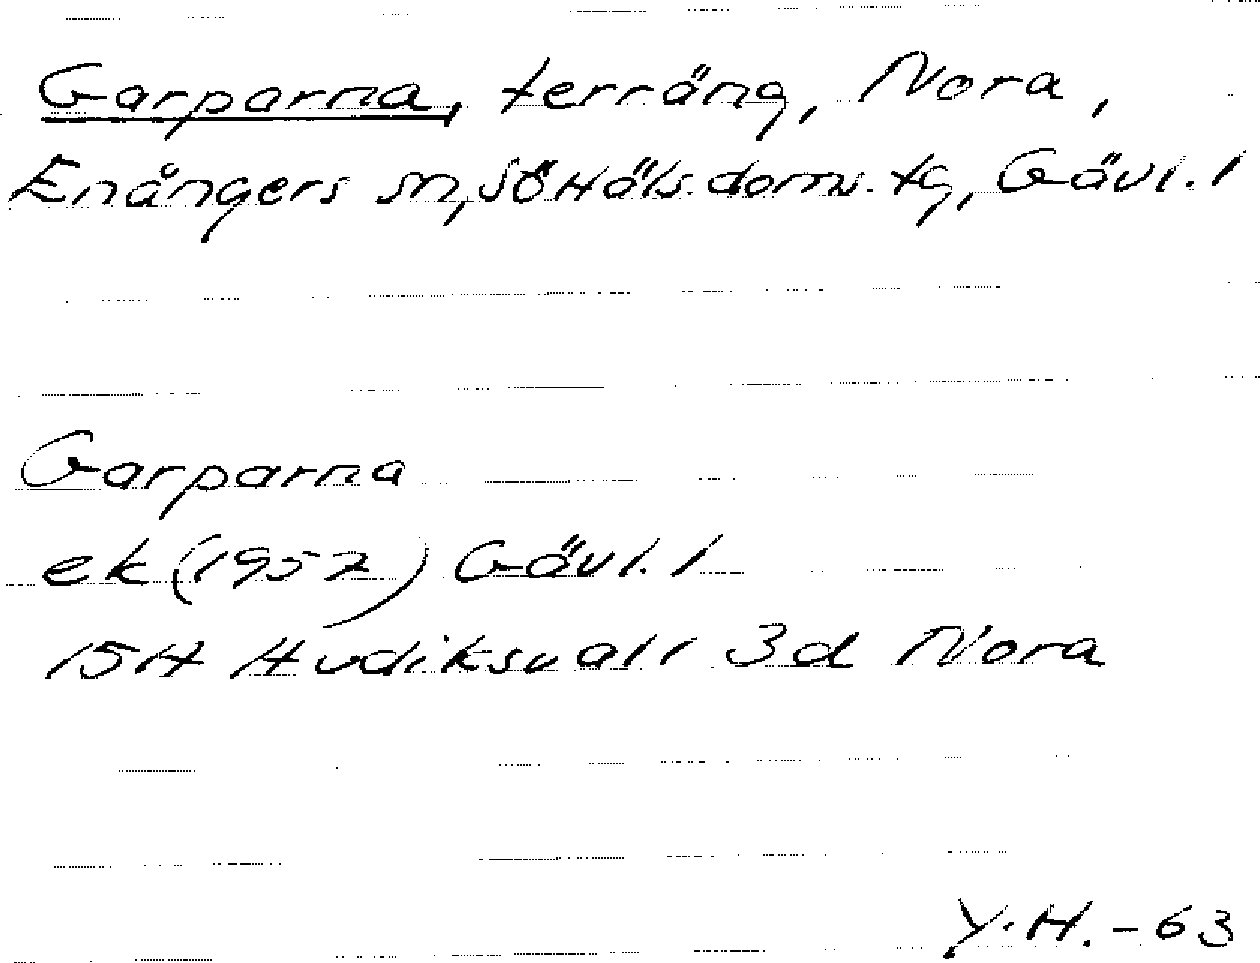 Garparna, terräng, Nora,
Enångers sn, SöHäls. doms. tg, Gävl. l
Garparna
ek (1957) Gävl. l
15H Hudiksvall 3d Nora
Y.H. - 63